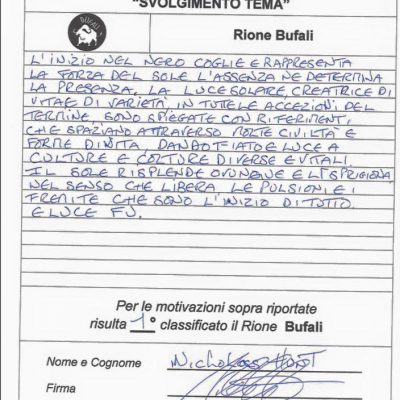 "SVOLGIMENTO TEMA"
BUFALI
Rione Bufali
L'INIZIO NEL NERO COGLIE E RAPPRESENTA
LA FORZA DEL SOLE L'ASSENZA NE DETERMINA
LA PRESENZA. LA LUCE SOLARE, CREATRICE DI
VITA E DI VARIETÀ, IN TUTTE LE ACCEZIONI DEL
TERMINE, SONO SPIEGATE CON RIFERIMENTI,
CHE SPAZIANO ATTRAVERSO MOLTE CIVILTÀ E
FORME DI VITA, DANDO FIATO E LUCE A
CULTURE E COLTURE DIVERSE E VITALI.
IL SOLE RISPLENDE OVUNQUE E LÌ SPRIGIONA
NEL SENSO CHE LIBERA LE PULSIONI, E I
FREMITI CHE SONO L'INIZIO DI TUTTO.
E LUCE FU.
Per le motivazioni sopra riportate
risulta 1° classificato il Rione Bufali
Nome e Cognome
Firma